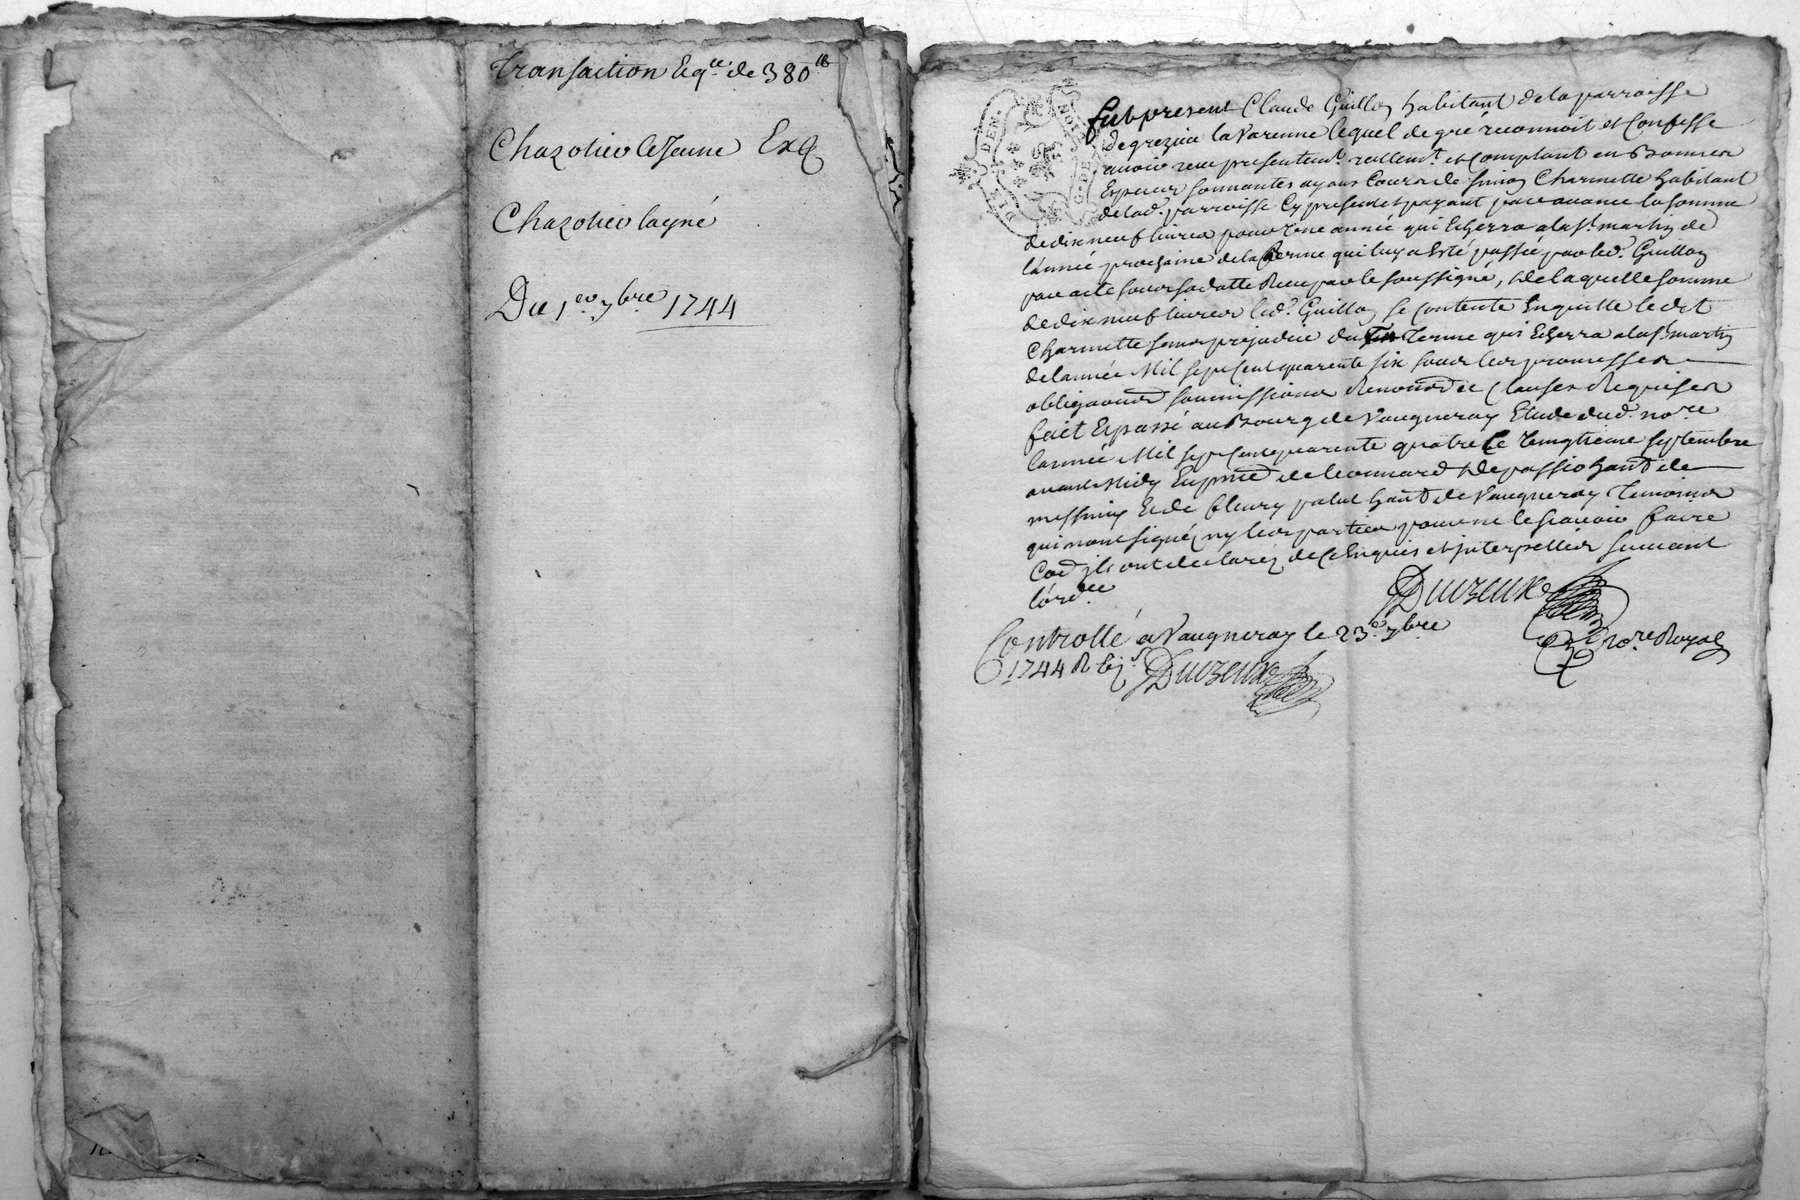 Transaction Eqce de 380 lt
Chazotier le Jeune Exp
Chazotier layné
Du 1er 7bre 1744
fut present Claude Guilloz habitant de la parroisse
de grezieu la Varenne lequel de gré reconnoit et Confesse
avoir reçu presentemt reellemt et Comptant en Bonnes
Especes sonnantes ayans Cours de Simoz Charmette habitant
de lad. parroisse Cy present et payant par avance la somme
de dix neuf livres pour Une année qui Echerra a la St martin de
l'année prochaine de la ferme qui luy a Esté passée par led. Guilloz
par acte sous sa datte Reçu par le soussigné, de laquelle somme
de dix neuf livres led. Guilloz se Contente En quitte le dit
Charmette sans prejudice du Terme qui Echerra a la St martin
de l'année Mil sept Cent quarente six sous les promesses
obligaons soumissions Renonons et Clauses Requises
fait Et passé au Bourg de Vaugneray Etude dud. nore
l'année Mil sept Cent quarente quatre le Vingtieme septembre
avant Midy En prnce de Leonnard Depassio hant de
messimy Et de fleury palul hant de Vaugneray Temoins
qui n'ont signéz ny les parties pour ne le sçavoir faire
Come ils ont declaréz de Ce Enquis et interpellés suivant
l'ordce
Duizeux
nore Royal
Controllé a Vaugneray le 23e 7bre
1744 R
Duizeux